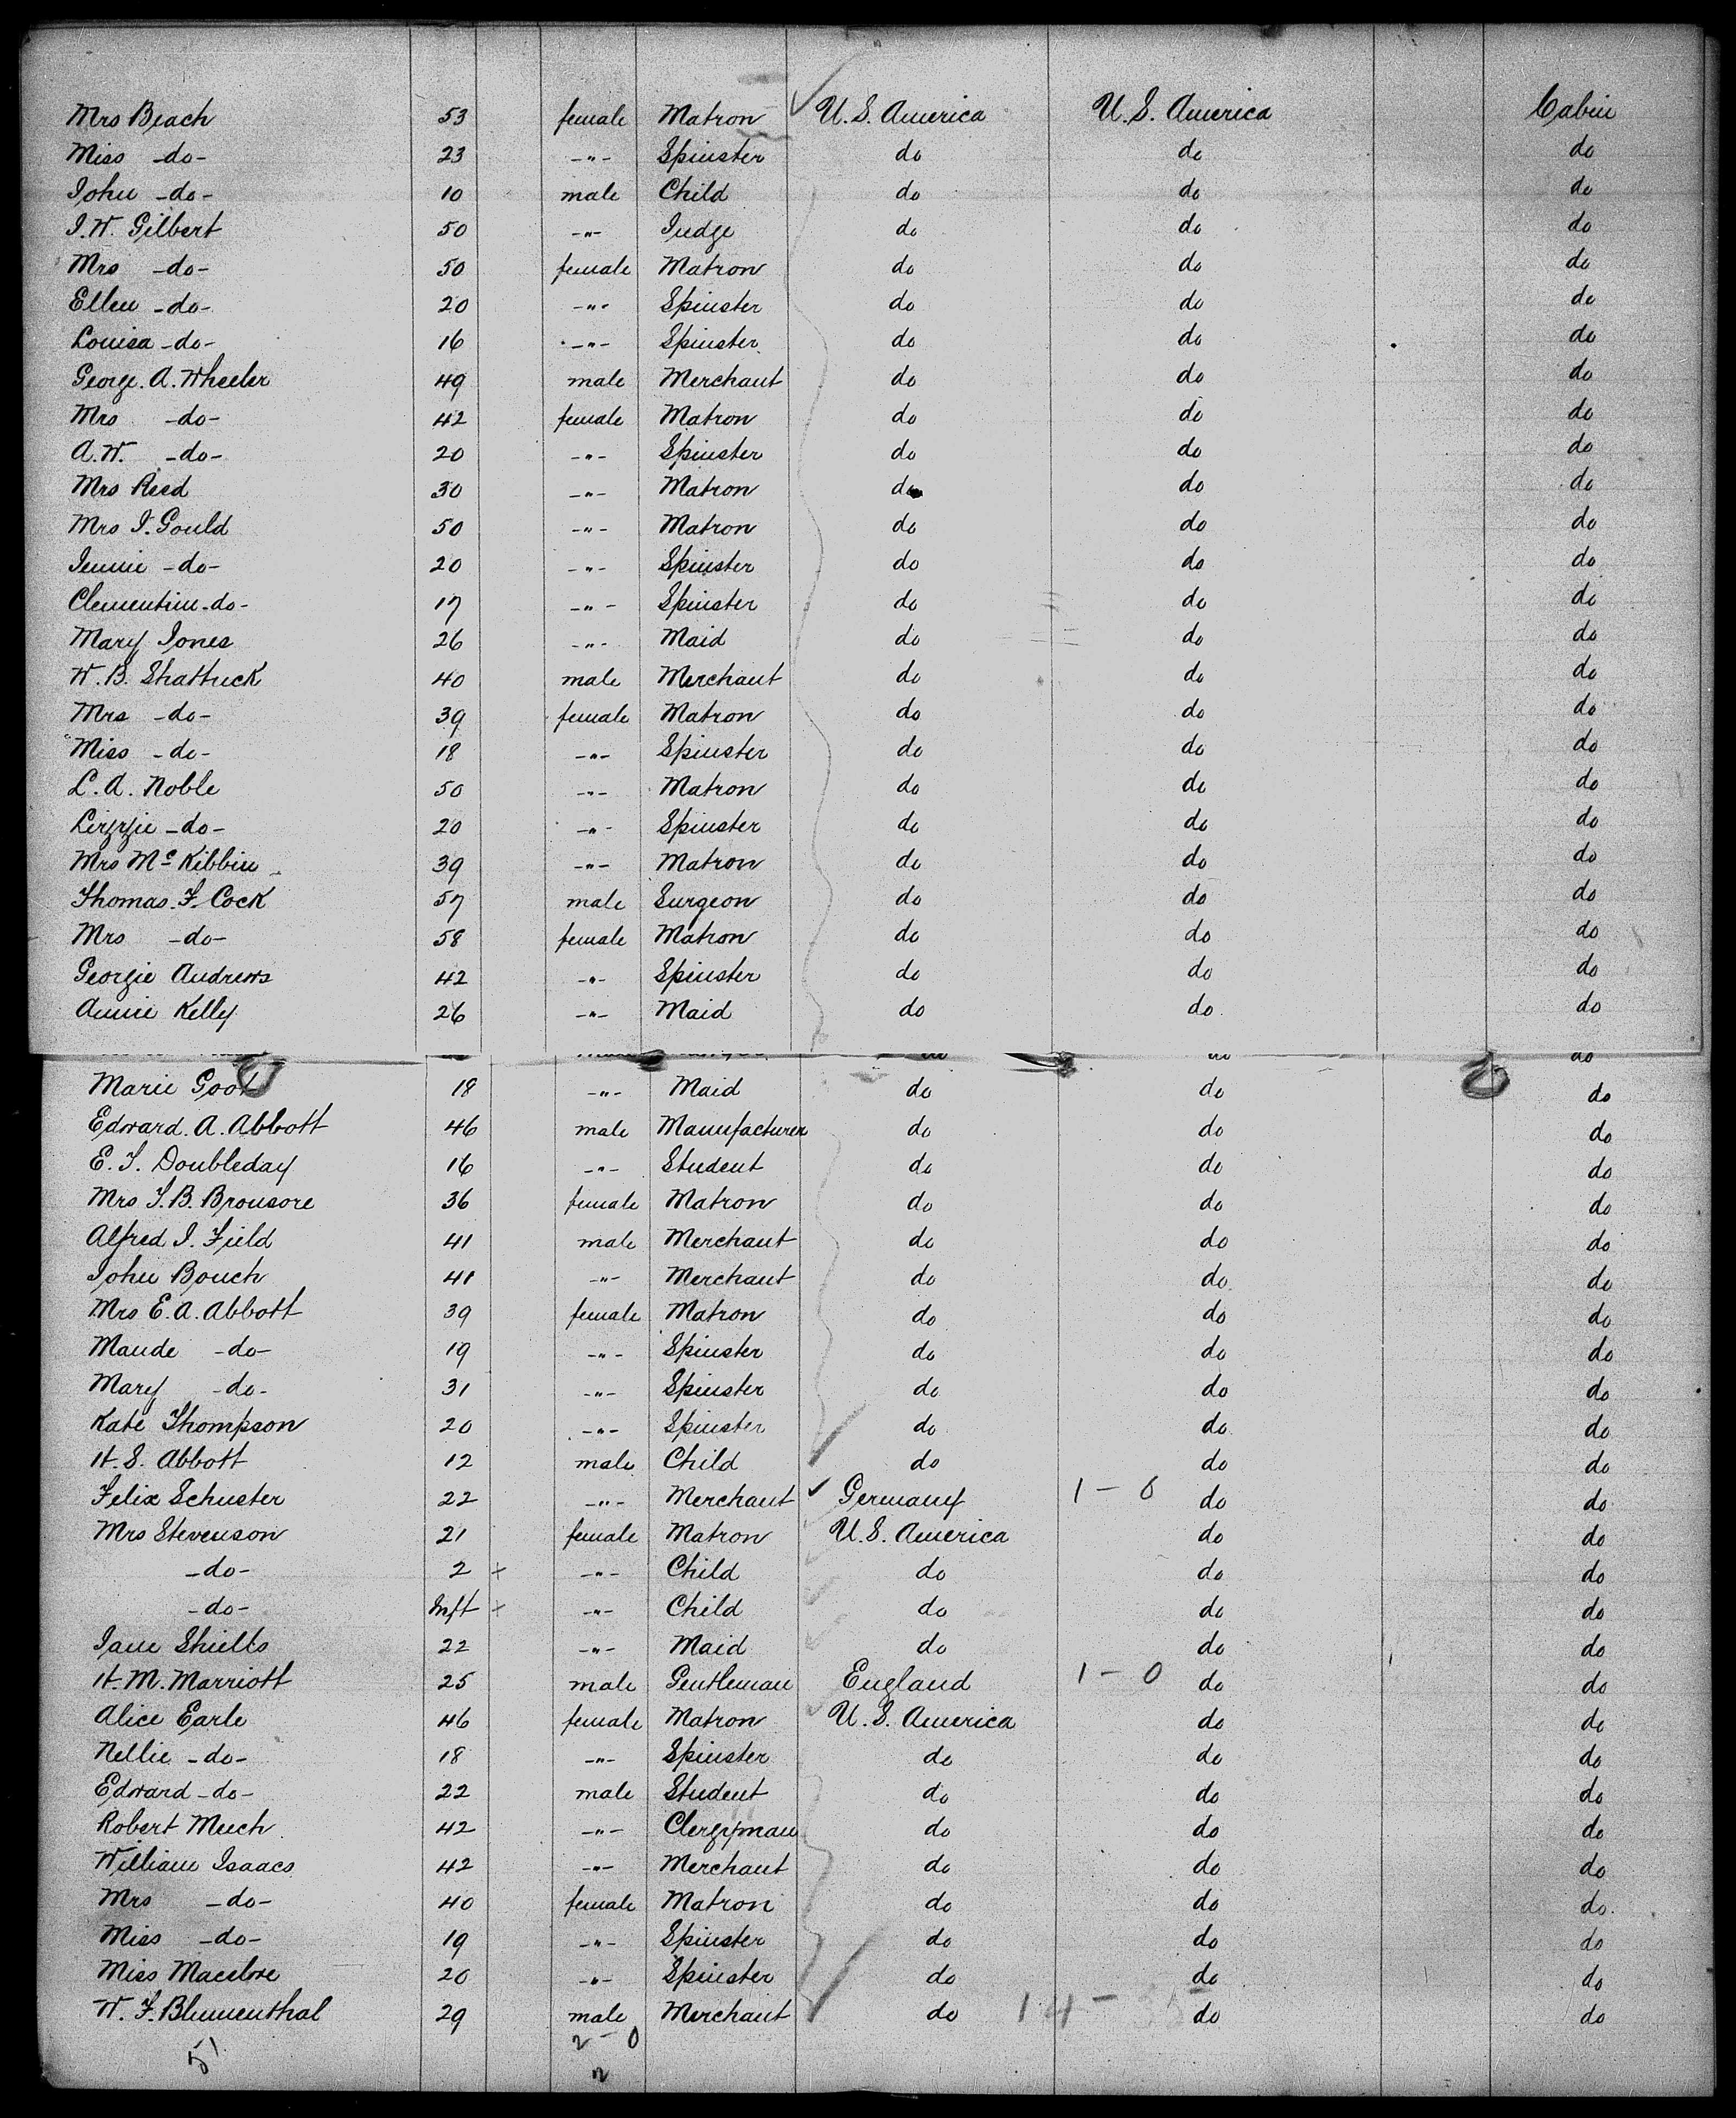 Mrs Beach 53 female Matron U.S. America U.S. America Cabin
Miss -do- 23 -"- Spinster do do do
John -do- 10 male Child do do do
J.W. Gilbert 50 -"- Judge do do do
Mrs -do- 50 female Matron do do do
Ellen -do- 20 -"- Spinster do do do
Louisa -do- 16 -"- Spinster do do do
George. A. Wheeler 49 male Merchant do do do
Mrs -do- 42 female Matron do do do
A.W. -do- 20 -"- Spinster do do do
Mrs Reed 30 -"- Matron do do do
Mrs J. Gould 50 -"- Matron do do do
Jennie -do- 20 -"- Spinster do do do
Clementine -do- 17 -"- Spinster do do do
Mary Jones 26 -"- Maid do do do
W.B. Shattuck 40 male Merchant do do do
Mrs -do- 39 female Matron do do do
Miss -do- 18 -"- Spinster do do do
L.A. Noble 50 -"- Matron do do do
Lizzie -do- 20 -"- Spinster do do do
Mrs McKibbin 39 -"- Matron do do do
Thomas. F. Cock 57 male Surgeon do do do
Mrs -do- 58 female Matron do do do
Georgie Andrews 42 -"- Spinster do do do
Annie Kelly 26 -"- Maid do do do
Marie 18 -"- Maid do do do
Edward. A. Abbott 46 male Manufacturer do do do
E.T. Doubleday 16 -"- Student do do do
Mrs T.B. Bronsore 36 female Matron do do do
Alfred J. Field 41 male Merchant do do do
John Bouch 41 -"- Merchant do do do
Mrs E.A. Abbott 39 female Matron do do do
Maude -do- 19 -"- Spinster do do do
Mary -do- 31 -"- Spinster do do do
Kate Thompson 20 -"- Spinster do do do
H.S. Abbott 12 male Child do do do
Felix Schuster 22 -"- Merchant Germany 1-0 do do
Mrs Stevenson 21 female Matron U.S. America do do
-do- 2 + -"- Child do do do
-do- Inft + -"- Child do do do
Jane Shiells 22 -"- Maid do do do
H.M. Marriott 25 male Gentleman England 1-0 do do
Alice Earle 46 female Matron U.S. America do do
Nellie -do- 18 -"- Spinster do do do
Edward -do- 22 male Student do do do
Robert Meech 42 -"- Clergyman do do do
William Isaacs 42 -"- Merchant do do do
Mrs -do- 40 female Matron do do do
Miss -do- 19 -"- Spinster do do do
Miss 20 -"- Spinster do do do
W.F. Blumenthal 29 male Merchant do 14- do do
51 2-0
2